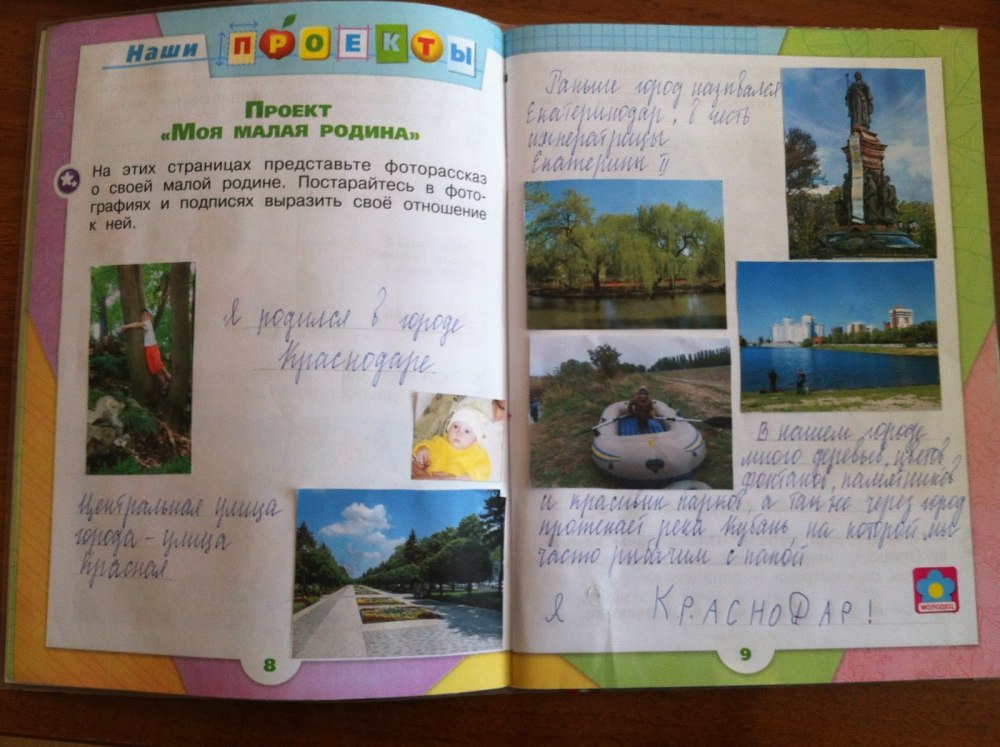 Наши ПРОЕКТЫ
ПРОЕКТ
«МОЯ МАЛАЯ РОДИНА»
На этих страницах представьте фоторассказ
о своей малой родине. Постарайтесь в фото-
графиях и подписях выразить своё отношение
к ней.
Я родился в городе
Краснодаре
Центральная улица
города - улица
Красная
8
Раньше город назывался
Екатеринодар, в честь
императрицы
Екатерины II
В нашем городе
много деревьев, цветов
фонтанов, памятников
и красивых парков, а так же через город
протекает река Кубань, на которой мы
часто рыбачим с папой.
Я КРАСНОДАР!
МОЛОДЕЦ
9